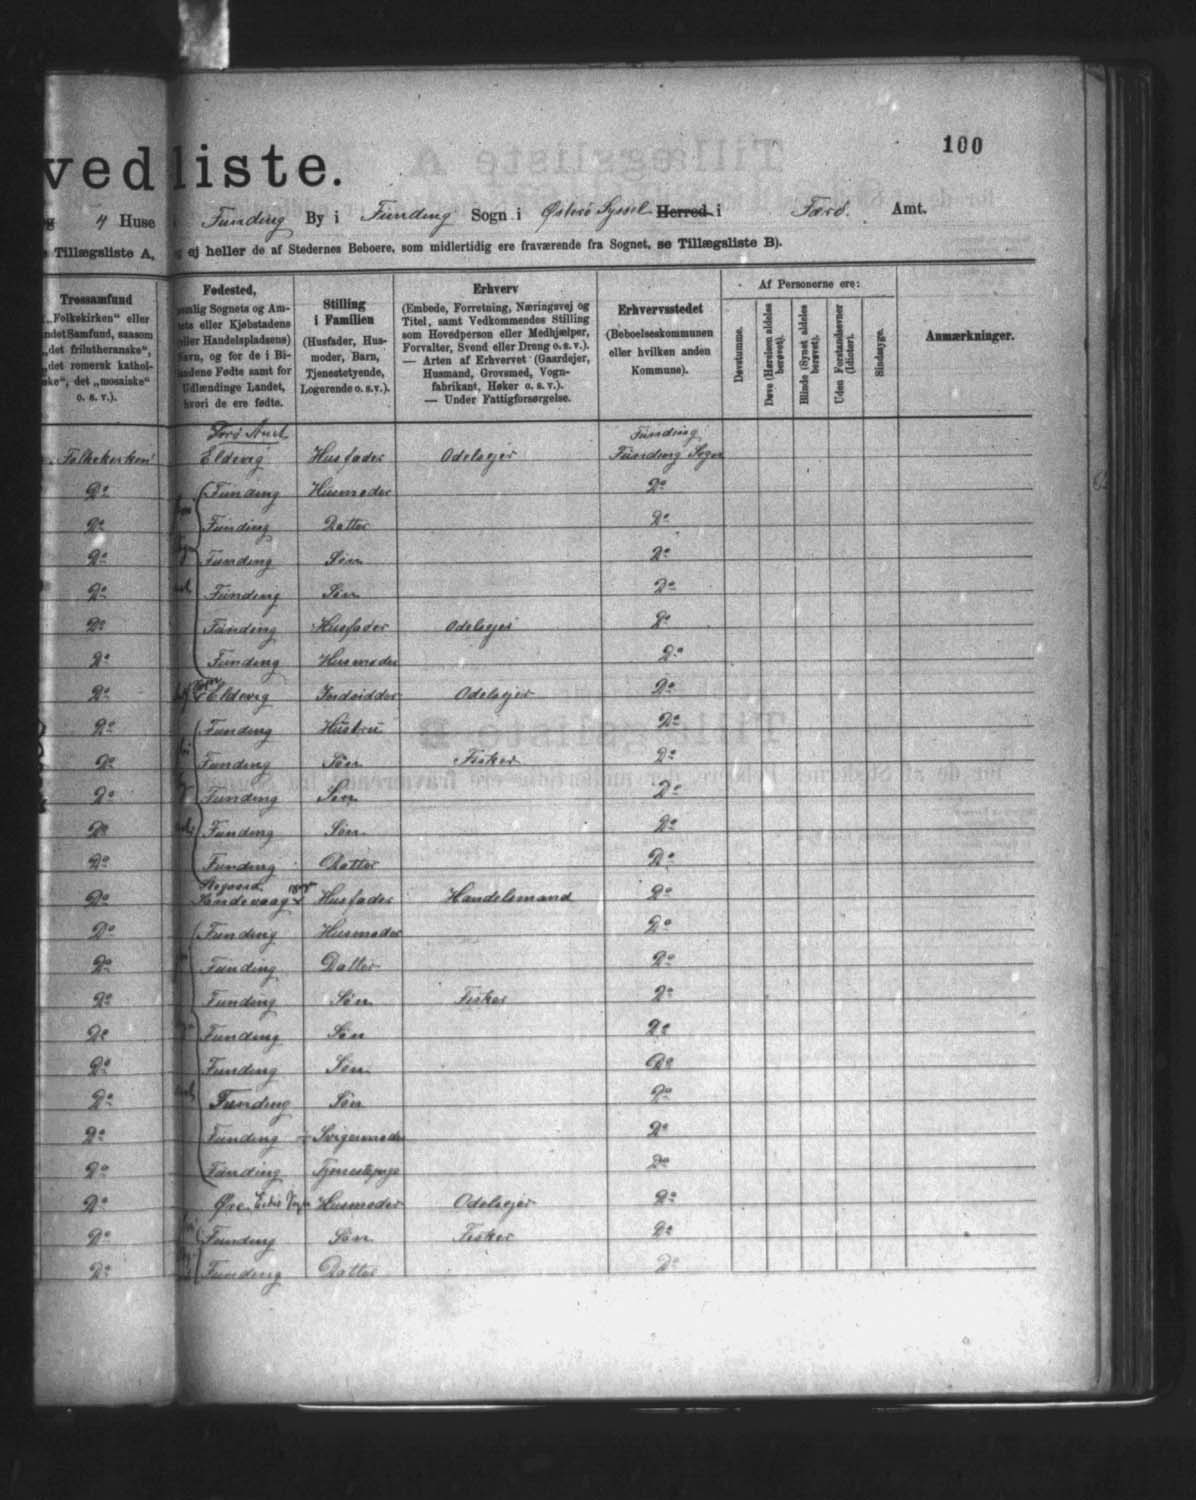 100
vedliste.
og 4 Huse i Funding By i Funding Sogn i Østerø Syssel Herred i Færø Amt.
Tillægsliste A, ej heller de af Stedernes Beboere, som midlertidig ere fraværende fra Sognet, se Tillægsliste B).
Trossamfund
„Folkekirken“ eller
andet Samfund, saasom
„det frilutheranske“,
„det romersk kathol-
ske“, det „mosaiske“
o. s. v.).
Fødested,
nemlig Sognets og Am-
tets eller Kjøbstadens
eller Handelspladsens)
Navn, og for de i Bi-
landene Fødte samt for
Udlændinge Landet,
hvori de ere fødte.
Stilling
i Familien
(Husfader, Hus-
moder, Barn,
Tjenestetyende,
Logerende o. s. v.).
Erhverv
(Embede, Forretning, Næringsvej og
Titel, samt Vedkommendes Stilling
som Hovedperson eller Medhjælper,
Forvalter, Svend eller Dreng o. s. v.).
— Arten af Erhvervet (Gaardejer,
Husmand, Grovsmed, Vogn-
fabrikant, Høker o. s. v.).
— Under Fattigforsørgelse.
Erhvervsstedet
(Beboelseskommunen
eller hvilken anden
Kommune).
Af Personerne ere:
Døvstumme.
Døve (Hørelsen aldeles
berøvet).
Blinde (Synet aldeles
berøvet).
Uden Forstandsevner
(Idioter).
Sindssyge.
Anmærkninger.
Færø Amt Funding
Folkekirken Eldevig Husfader Odelsejer Funding Sogn
Do Funding Husmoder Do
Do Funding Datter Do
Do Funding Søn Do
Do Funding Søn Do
Do Funding Husfader Odelsejer Do
Do Funding Husmoder Do
Do Eldevig Indsidder Odelsejer Do
Do Funding Hustru Do
Do Funding Søn Fisker Do
Do Funding Søn Do
Do Funding Søn Do
Do Funding Datter Do
Do Sandevaag Husfader Handelsmand Do
Do Funding Husmoder Do
Do Funding Datter Do
Do Funding Søn Fisker Do
Do Funding Søn Do
Do Funding Søn Do
Do Funding Søn Do
Do Funding Svigermoder Do
Do Funding Tjenestepige Do
Do Øre Husmoder Odelsejer Do
Do Funding Søn Fisker Do
Do Funding Datter Do